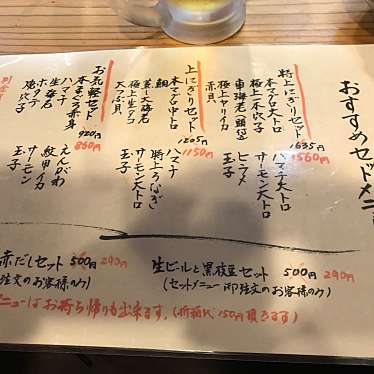 おすすめセットメニ
特上にぎりセット 1635 1560
本マグロ大トロ
極上一本穴子
車海老(頭付)
極上ヤリイカ
赤貝
ハマチ大トロ
サーモン大トロ
ヒラメ
玉子
上にぎりセット 1205 1150
本マグロ中トロ
鯛
蒸し大海老
極上生タコ
天つぶ貝
ハマチ
特上うなぎ
サーモン大トロ
玉子
お気軽セット 920円 860円
本まぐろ赤身
ハマチ
生海老
ホタテ
焼穴子
えんがわ
紋甲イカ
サーモン
玉子
赤だしセット 500円 290円
注文のお客様のみ)
生ビールと黒枝豆セット 500円 290円
(セットメニュー御注文のお客様のみ)
メニューはお持ち帰りも出来ます。(折箱代150円頂きます)